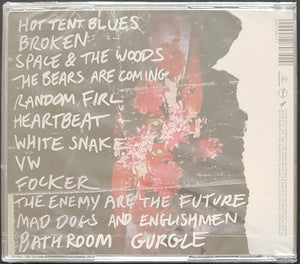 HOT TENT BLUES
BROKEN
SPACE & THE WOODS
THE BEARS ARE COMING
RANDOM FIRL
HEARTBEAT
WHITE SNAKE
VW
FOCKER
THE ENEMY ARE THE FUTURE
MAD DOGS AND ENGLISHMEN
BATHROOM GURGLE